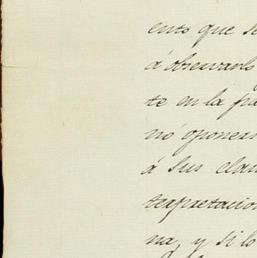 ento que se
á observarlo
te en la pa
nó oponers
á sus clau
terpretacion
na, y si lo